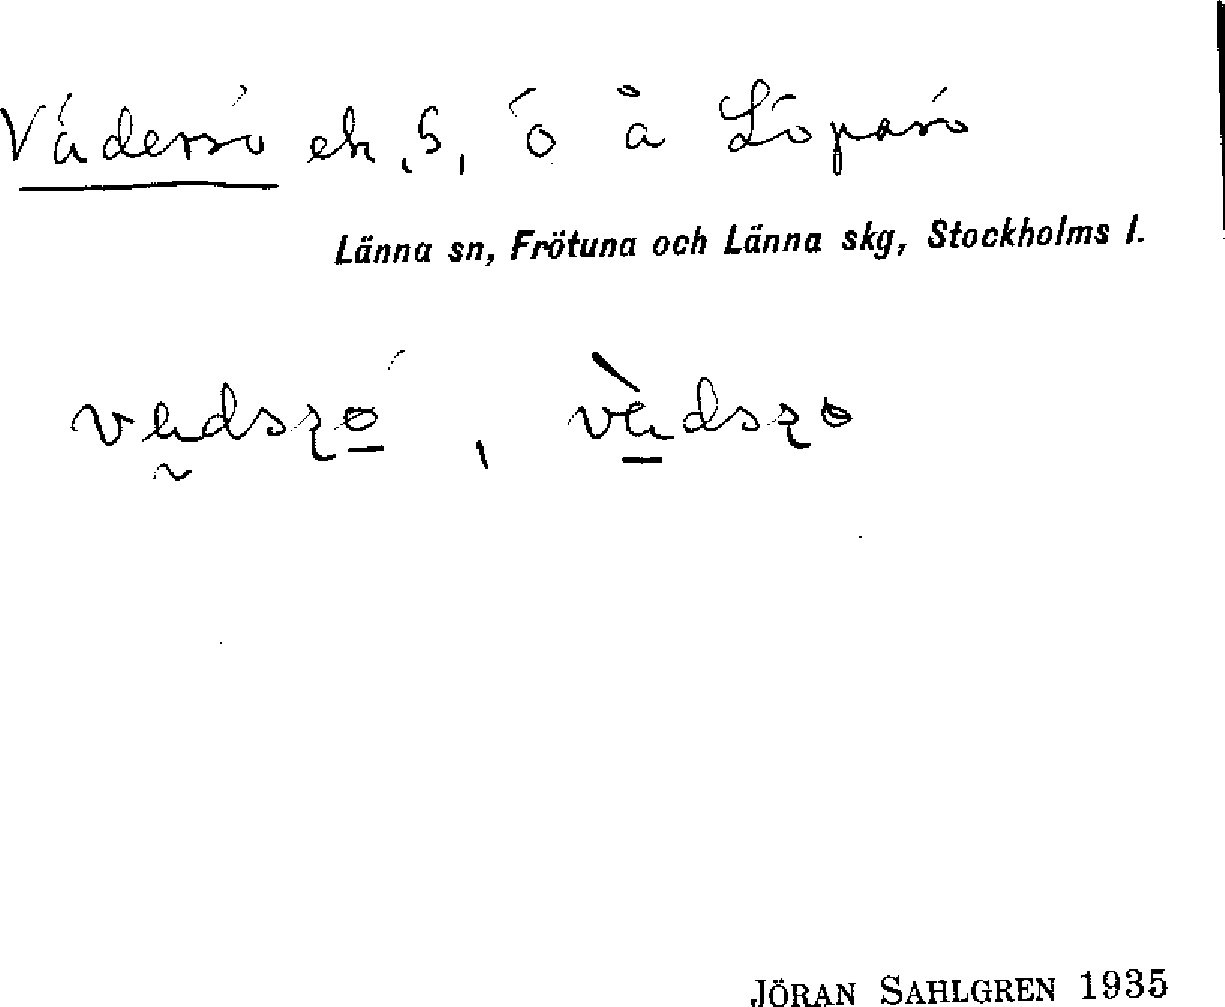 Vädersö ek. S, ö å Löparö
Länna sn, Frötuna och Länna skg, Stockholms l.
JÖRAN SAHLGREN 1935